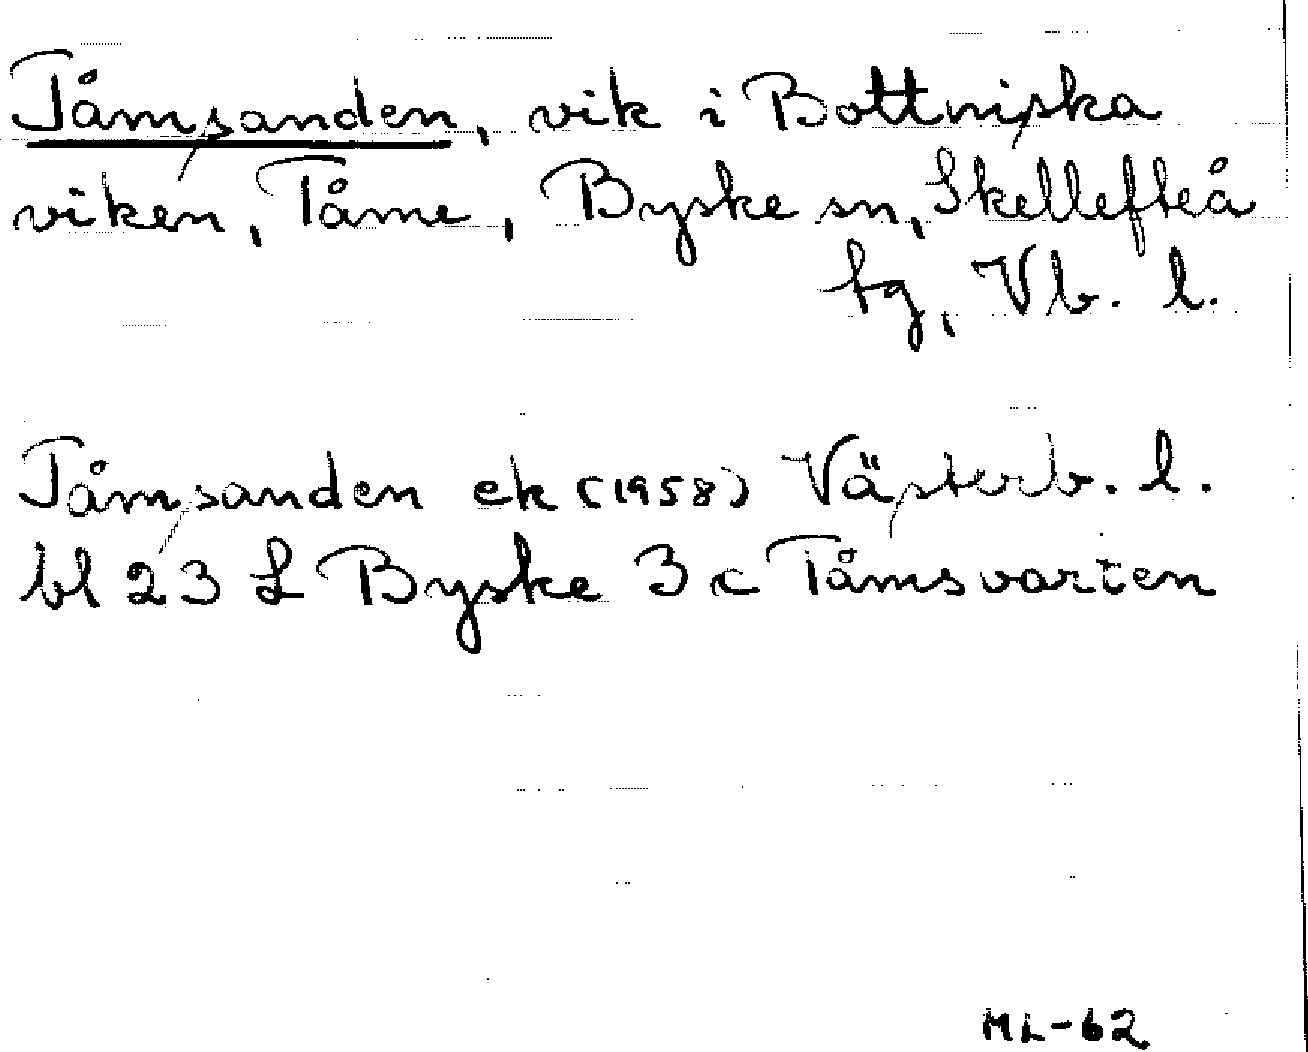 Tåmsanden, vik i Bottniska
viken, Tåme, Byske sn, Skellefteå
tg, Vb. l.
Tåmsanden ek (1958) Västerb. l.
bl 23 L Byske 3 c Tåmsvarten
ML-62